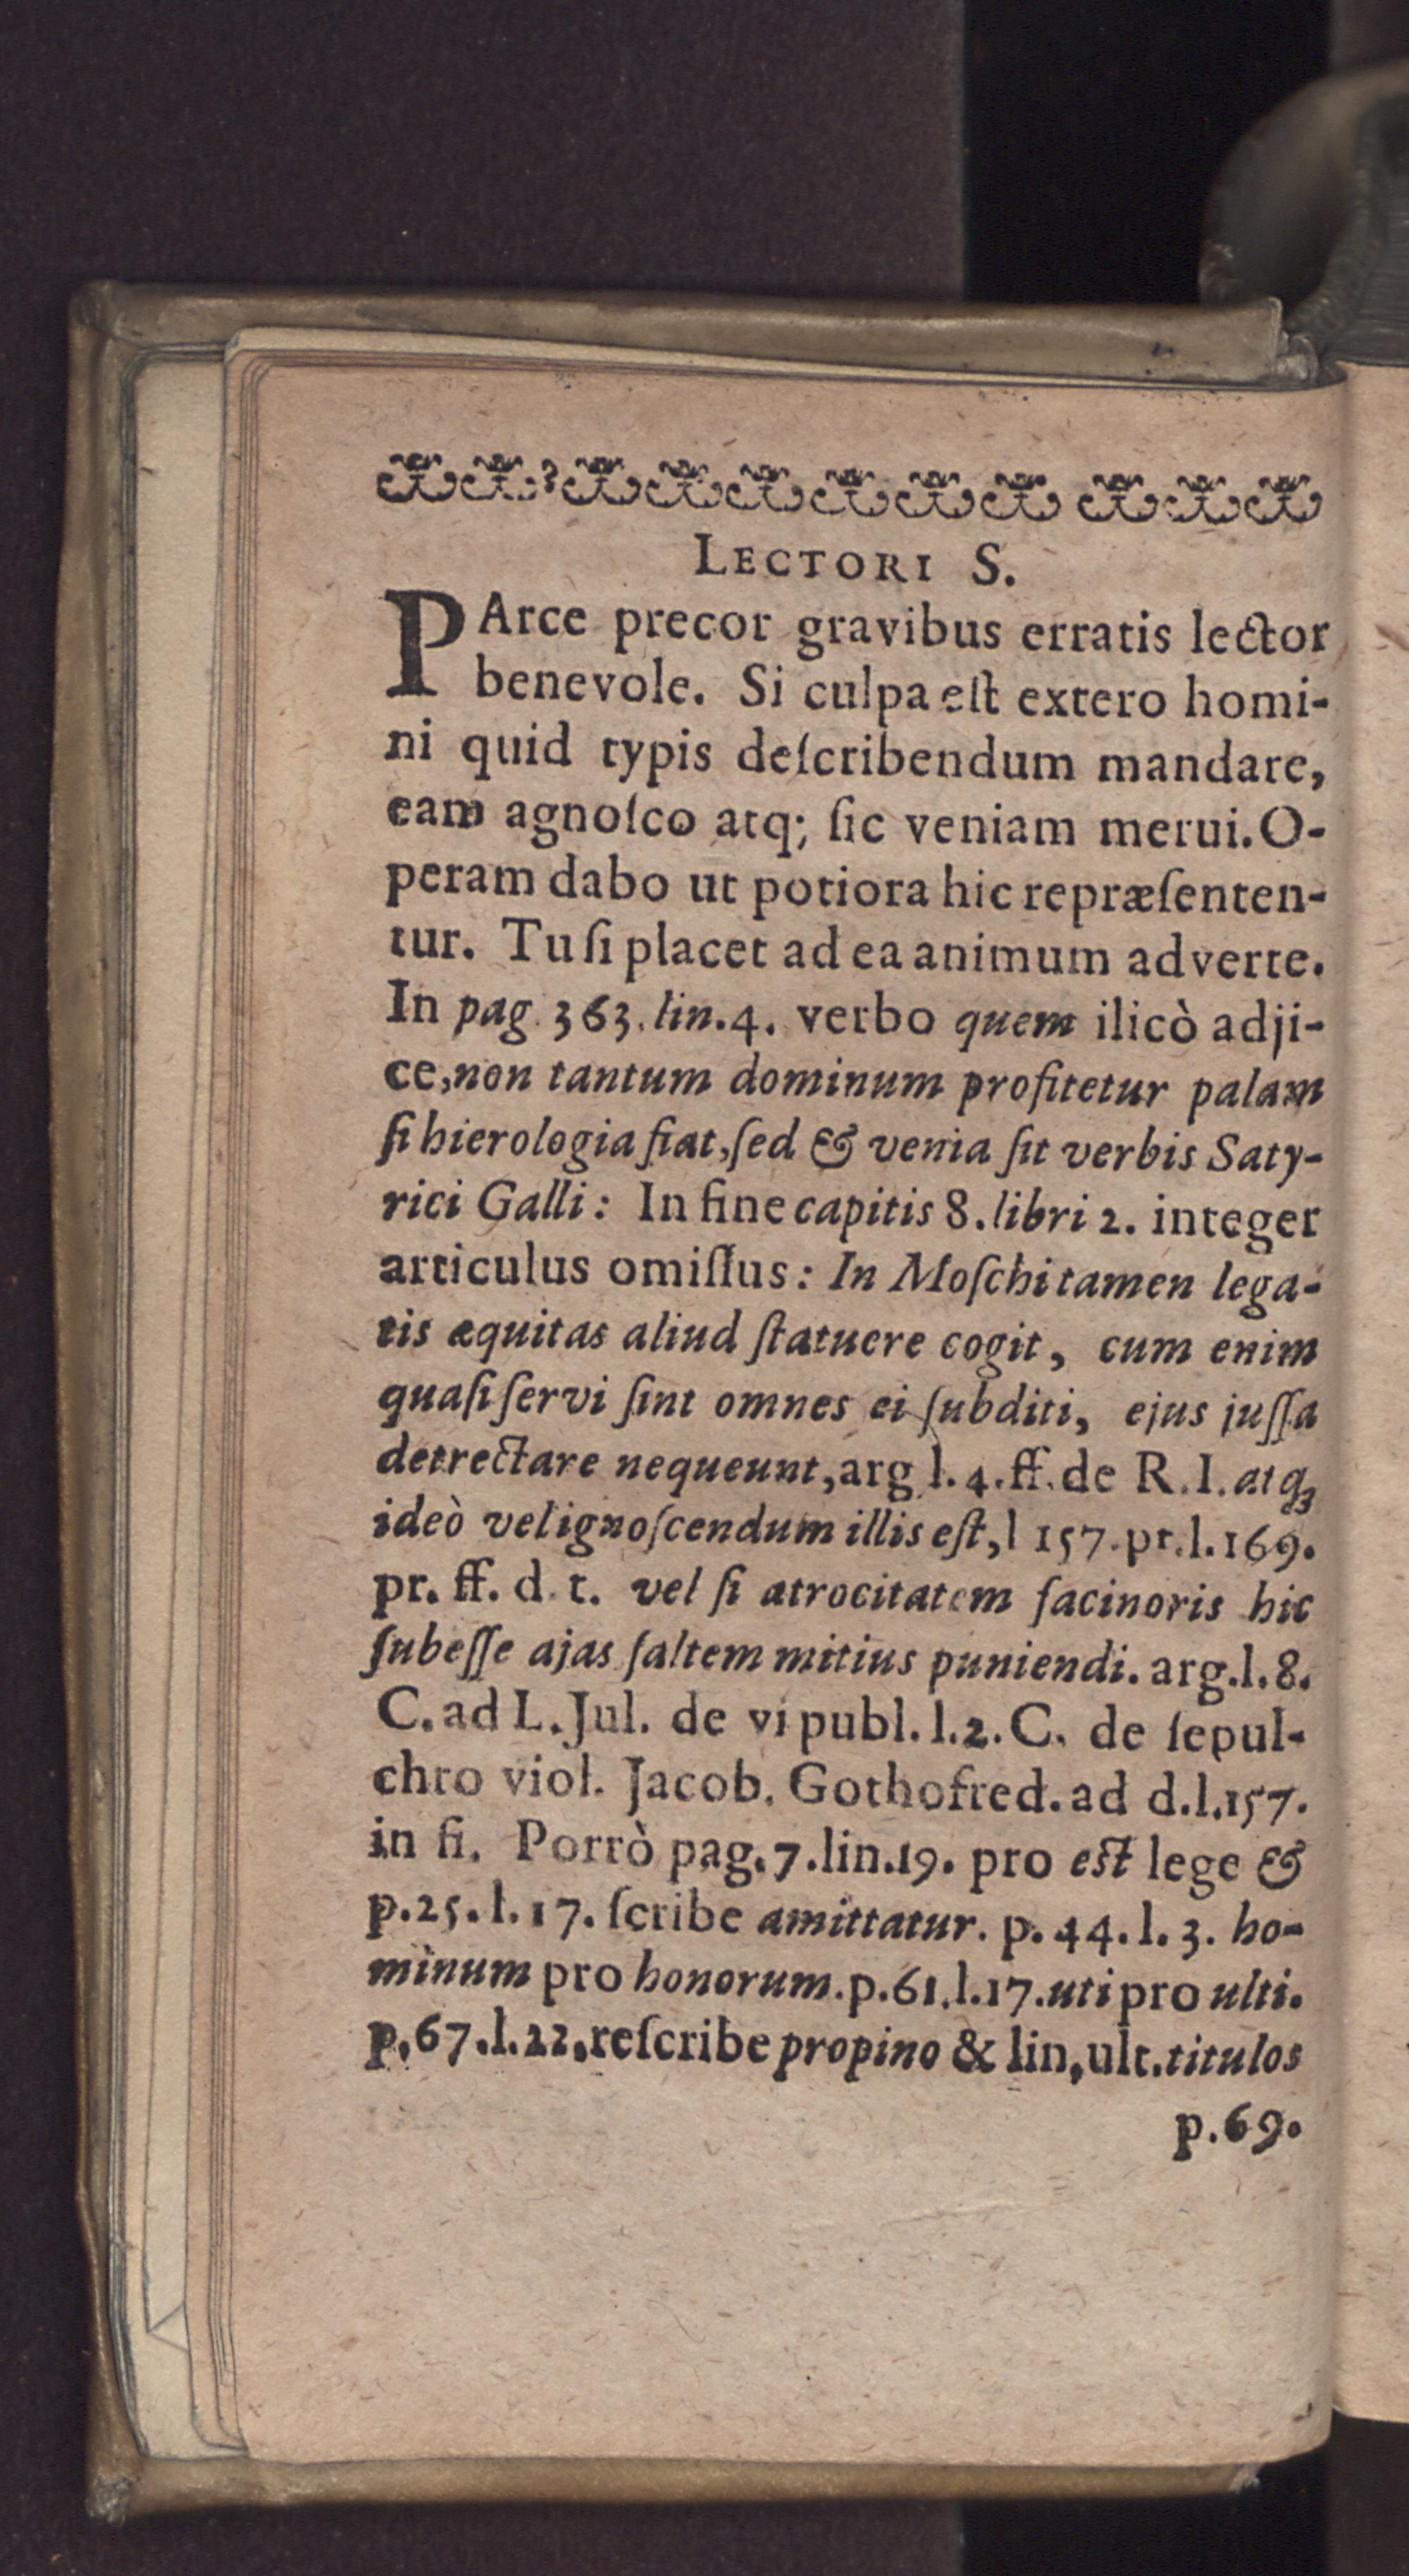 LECTORI S.
PArce precor gravibus erratis lector
benevole. Si culpa eſt extero homi-
ni quid typis deſcribendum mandare,
eam agnoſco atq; ſic veniam merui. O-
peram dabo ut potiora hic repræſenten-
tur. Tu ſi placet ad ea animum adverte.
In pag. 363. lin. 4. verbo quem ilicò adji-
ce, non tantum dominum profitetur palam
ſi hierologia fiat, ſed & venia ſit verbis Saty-
rici Galli: In fine capitis 8. libri 2. integer
articulus omiſſus: In Moſchi tamen lega-
tis æquitas aliud ſtatuere cogit, cum enim
quaſi ſervi ſint omnes ei ſubditi, ejus juſſa
detrectare nequeunt, arg l. 4. ff. de R. I. atq;
ideò vel ignoſcendum illis eſt, l 157. pr. l. 169.
pr. ff. d. t. vel ſi atrocitatem facinoris hic
ſubeſſe ajas ſaltem mitius puniendi. arg. l. 8.
C. ad L. Jul. de vi publ. l. 2. C. de ſepul-
chro viol. Jacob. Gothofred. ad d. l. 157.
in fi. Porrò pag. 7. lin. 19. pro eſt lege &
p. 25. l. 17. ſcribe amittatur. p. 44. l. 3. ho-
minum pro honorum. p. 61. l. 17. uti pro ulti.
p. 67. l. 22. reſcribe propino & lin, ult. titulos
p. 69.